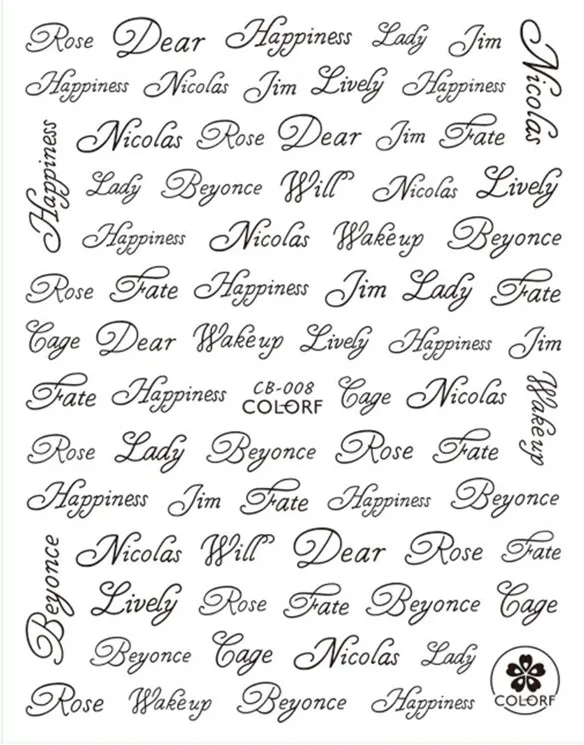 Rose Dear Happiness Lady Jim
Nicolas
Happiness Nicolas Jim Lively Happiness
Happiness
Nicolas Rose Dear Jim Fate
Lady Beyonce Will Nicolas Lively
Happiness Nicolas Wake up Beyonce
Rose Fate Happiness Jim Lady Fate
Cage Dear Wake up Lively Happiness Jim
Fate Happiness CB-008 Cage Nicolas
COLORF
Wake up
Rose Lady Beyonce Rose Fate
Happiness Jim Fate Happiness Beyonce
Beyonce
Nicolas Will Dear Rose Fate
Lively Rose Fate Beyonce Cage
Beyonce Cage Nicolas Lady
Rose Wake up Beyonce Happiness
COLORF